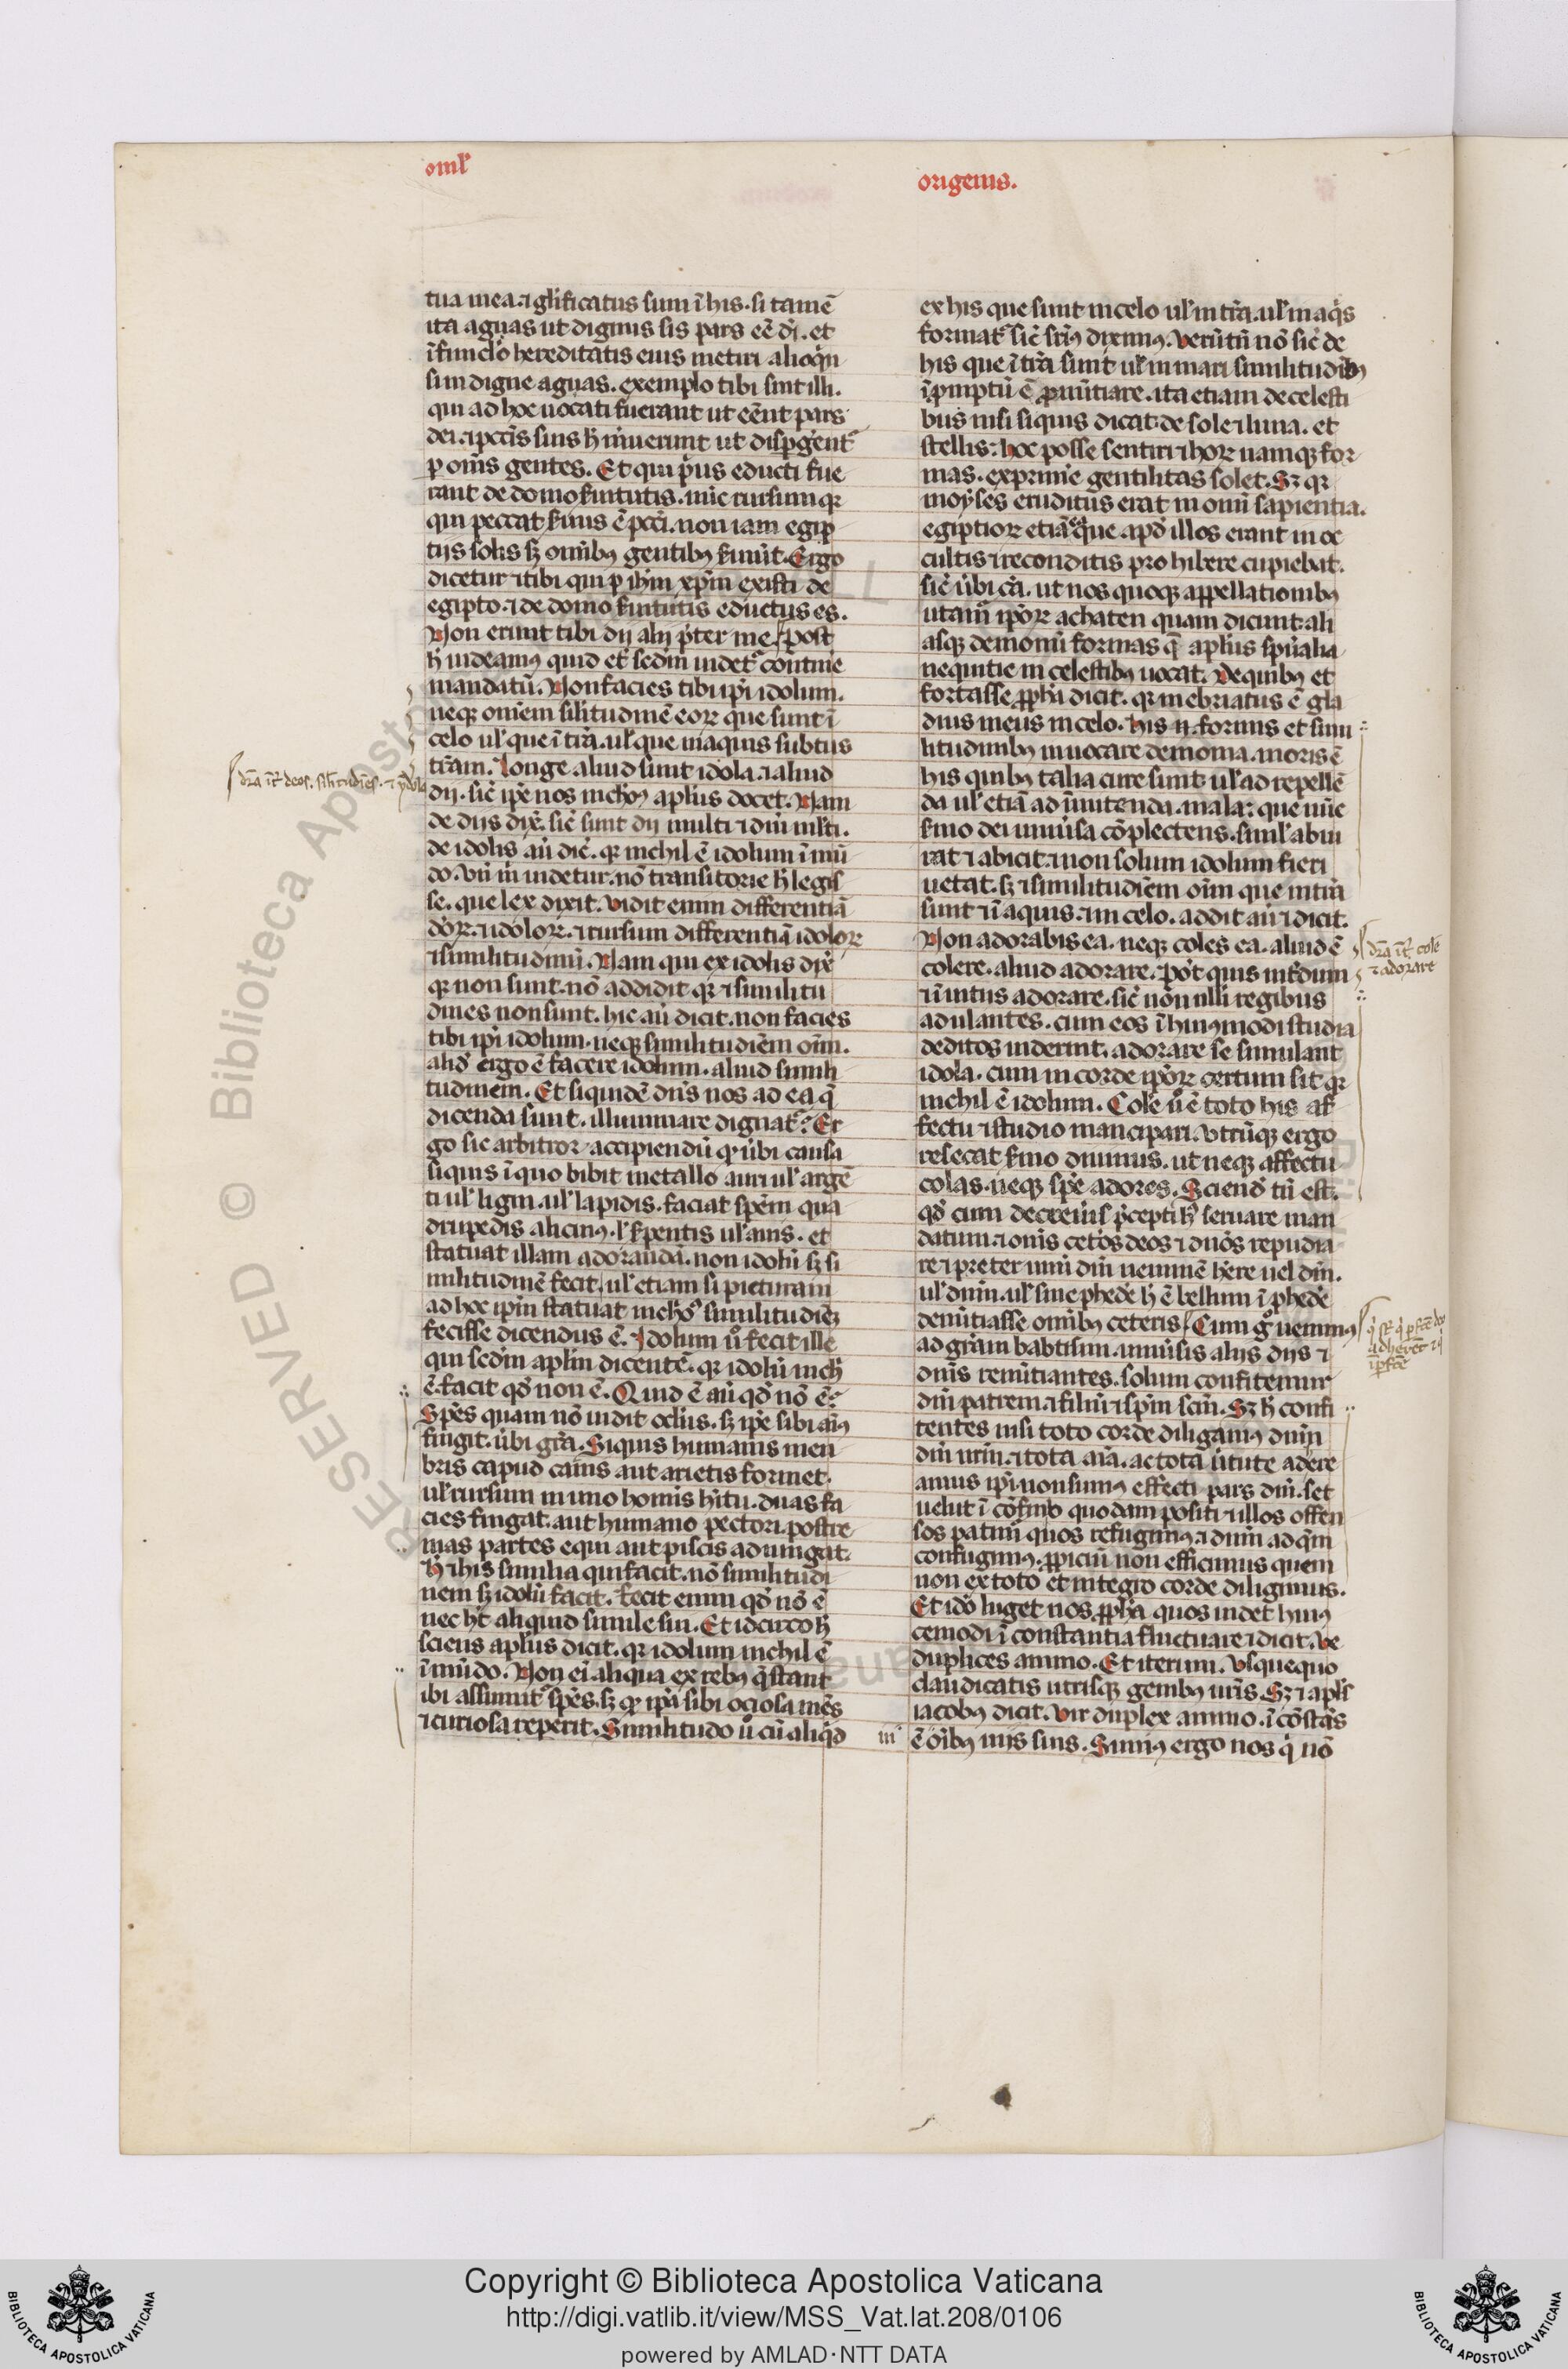 oml'
origenis.
tua mea. ⁊ gl'ificatus sum ī his. si tamē
ita aguas ut dignus sis pars eē dī. et
ī funicl'o hereditatis eius metiri alioq̇n
si indigne aguas. exemplo tibi sint illi.
qui ad hoc uocati fuerant ut eēnt pars
dei. ⁊ pctīs suis h̄ mͥuerunt ut dispͣgent᷑
p om̄s gentes. Et qui pͥus educti fue
rant de domo ẜuitutis. nūc rursum qꝛ
qui peccat ẜuus ē pcc̄i. non iam egip
tijs solis sꝫ om̄ibꝰ gentibꝰ ẜuiūt. Ergo
dicetur ⁊ tibi qui p ih̄m xp̄m existi de
egipto. ⁊ de domo ẜuitutis eductus es.
Non erunt tibi dij alij p̄ter me. Post
h̄ uideamꝰ quid et scd̄m uidet᷑ contine
mandatū. Non facies tibi ip̄i idolum.
neqꝫ omēm sil'itudinē eoꝝ que sunt ī
celo ul' que ī tr̄a. ul' que in aquis subtus
tr̄am. Longe aliud sunt idola. ⁊ aliud
dij. sic̄ ip̄e nos nichoꝰ aplūs docet. Nam
de dijs dix̄. sic̄ sunt dij multi ⁊ dn̄i ml'ti.
de idolis aū dic̄. qꝛ nichil ē idolum ī mū
do. Vn̄ m̄ uidetur. nō transitorie h̄ legis
se. que lex dixit. Vidit enim differentiā
dōꝝ. ⁊ idoloꝝ. ⁊ rursum differentiā idoloꝝ
⁊ similitudinū. Nam qui ex idolis dix̄
qꝛ non sunt. nō addidit qꝛ ⁊ similitu
dines non sunt. hic aū dicit. non facies
tibi ip̄i idolum. neqꝫ similitudiēm oīm.
alid̄ ergo ē facere idolum. aliud simili
tudinem. Et siquidē dn̄s nos ad ea q̄
dicenda sunt. illuminare dignat᷑. Er
go sic arbitror accipiendū qꝛ ūbi causa
si quis ī quo bibit metallo auri ul' argē
ti ul' ligni. ul' lapidis. faciat spēm qua
drupedis alicuiꝰ. l' ẜpentis ul' auis. et
statuat illam adorandā. non idolū sꝫ si
militudinē fecit. ul' etiam si picturam
ad hoc ipm̄ statuat similitudiēꝫ
fecisse dicendus ē. Idolum ū fecit ille
qui scd̄m aplm̄ dicentē. qꝛ idolū nich'
ē. facit qd̄ non ē. Quid ē aū qd̄ nō ē?
Spēs quam nō uidit ocl'us. sꝫ ip̄e sibi aīꝰ
fingit. ūbi grā. Si quis humanis men
bris capud canis aut arietis formet.
ul' rursum in uno hoīnis hītu. duas fa
cies fingat. aut humano pectori. postre
mas partes equi aut piscis adiungat.
h̄ ⁊ his similia qui facit. nō similitudi
nem sꝫ idolū facit. Fecit enim qd̄ nō ē
nec ht̄ aliquid simile sui. Et idcirco h̄
sciens aplūs dicit. qꝛ idolum nichil ē
ī mūdo. Non eī aliqua ex rebꝰ qͣstant
ibi assumit᷑ spēs. sꝫ qꝛ ip̄a sibi ociosa mēs
⁊ curiosa reperit. Similitudo ū cū aliqͥd
ex his que sunt in celo ul' in tr̄a. ul' in aqͥs
format᷑ sic̄ sr̄iꝰ diximꝰ. Verūtn̄ nō sic̄ de
his que ī tr̄a sunt ul' in mari similitudībꝰ
ī pͥmptū ē pnūtiare. ita etiam de celesti
bus nisi si quis dicat. de sole ⁊ luna. et
stellis: hoc posse sentiri ⁊ hoꝝ namqꝫ for
mas. exprimē gentilitas solet. Sꝫ qꝛ
moyses eruditus erat in omī sapientia.
egiptioꝝ etiā ea que apd̄ illos erant in oc
cultis ⁊ reconditis prohibere cupiebat.
sic̄ ūbi cā. ut nos quoqꝫ appellationibꝰ
utam᷑ ip̄oꝝ achaten quam dicunt. ali
asqꝫ demoniū formas q̄ aplūs spūalia
nequitie in celestibꝰ uocat. De quibꝰ et
fortasse pph̄a dicit. qꝛ inebriatus ē gla
dius meus in celo. his n̄. formis et simi
litudinibꝰ inuocare demonia. moris ē
his quibꝰ talia cure sunt. ul' ad repellē
da ul' etiā ad īmittenda. mala: que nūc
ẜmo dei uniūsa cōplectens. simul' abiu
rat ⁊ abicit. ⁊ non solum idolum fieri
uetat. sꝫ ⁊ similitudiēm oīm que in tr̄a
sunt ⁊ ī aquis. ⁊ in celo. addit aū ⁊ dicit.
Non adorabis ea. neqꝫ coles ea. aliud ē
colere. aliud adorare. pōt quis int̄dum
⁊ īuitus adorare. sic̄ non nlli regibus
adulantes. cum eos ī huiꝰmodi studia
deditos uiderint. adorare se simulant
idola. cum in corde ip̄oꝝ certum sit qꝛ
nichil ē idolum. Colē ū ē toto his af
fectu ⁊ studio mancipari. Vtrūqꝫ ergo
resecat ẜmo diuinus. ut neqꝫ affectu
colas. neqꝫ spē adores. Sciend̄ tn̄ est.
qd̄ cum decreuis p̄cepti hꝰ seruare man
datum. ⁊ om̄s cetōs deos ⁊ dn̄os repudia
re ⁊ preter unū dm̄ neminē h̄ere uel dn̄m.
ul' dn̄m. ul' sine phede h̄ ē bellum ī phede
denūtiasse omībꝰ ceteris. Cum g̊ uenimꝰ
ad grām babtismi. uniūsis alijs dijs ⁊
dn̄is renūtiantes. solum confitemur
dm̄ patrem. ⁊ filiū ⁊ spm̄ scm̄. Sꝫ h̄ confi
tentes nisi toto corde diligamꝰ dn̄m
dm̄ nrm̄. ⁊ tota aīa. ac tota ūtute adhe
amus ip̄i. non sumꝰ effecti pars dn̄i. set
uelut ī cōfinio quodam positi ⁊ illos offen
sos patimū quos refugimꝰ. ⁊ dn̄m ad qm̄
confugimꝰ. ppiciū non efficimus quem
non ex toto et integro corde diligimus.
Et idō luget nos pph̄a quos uidet huiꝰ
cemodi ī constantia fluctuare ⁊ dicit. Ve
duplices animo. Et iterum. Vsquequo
claudicatis utrisqꝫ genibꝰ ur̄is. Sꝫ ⁊ apl's
iacobꝰ dicit. Vir duplex animo. ī cōstās
ē oībꝰ uijs suis. Simꝰ ergo nos qͥ nō
dr̄a īt' deos. sil'itudīes. ⁊ ydola
dr̄a īt' colē
⁊ adorare